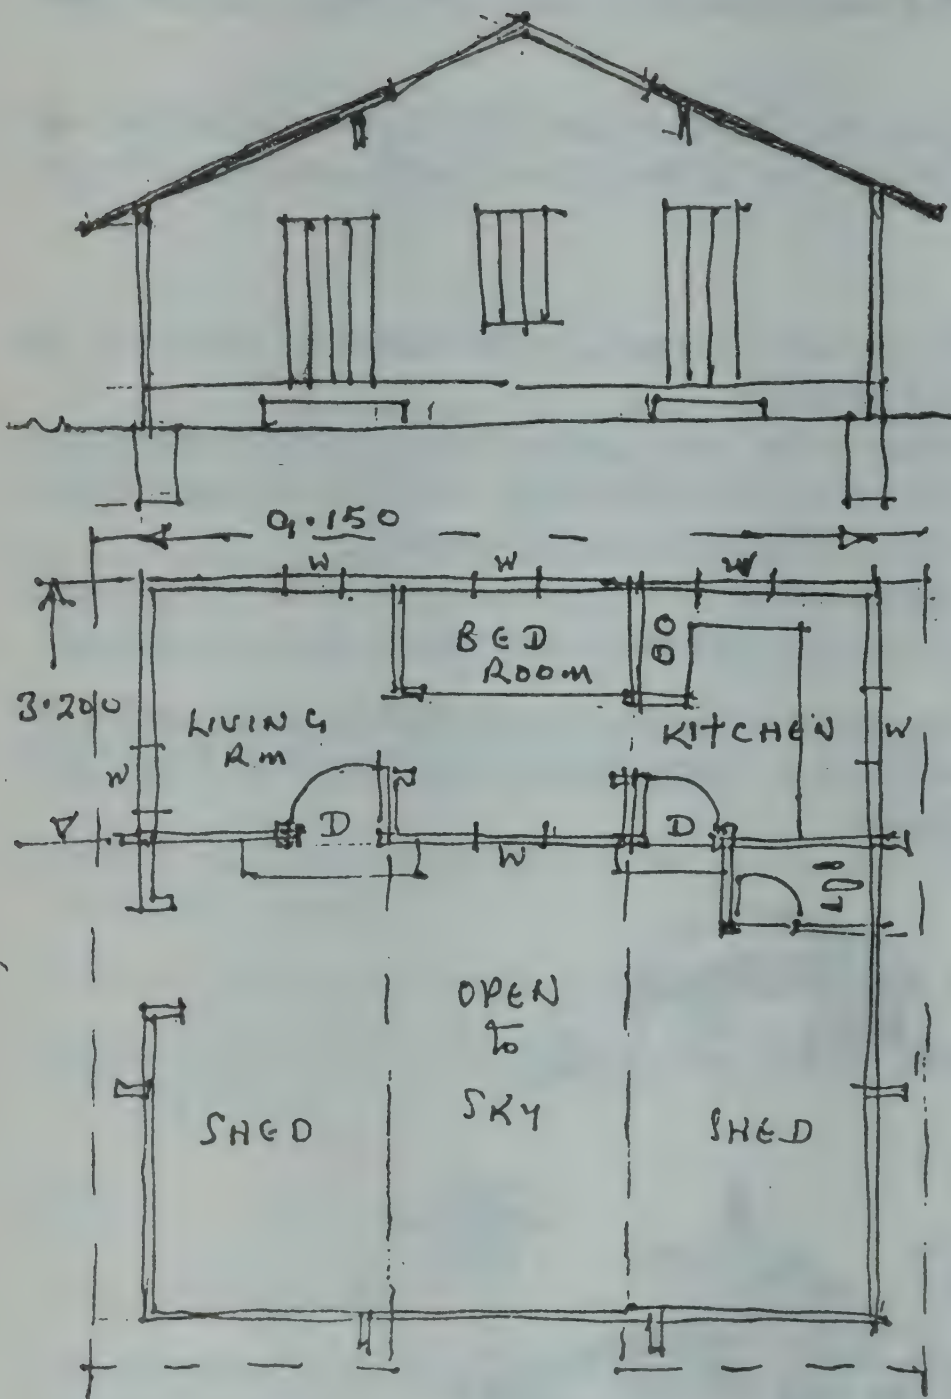 9.150
W W W
BED
ROOM
3.200
LIVING
RM
KITCHEN
W
W
D
D
W
OPEN
TO
SKY
SHED
SHED